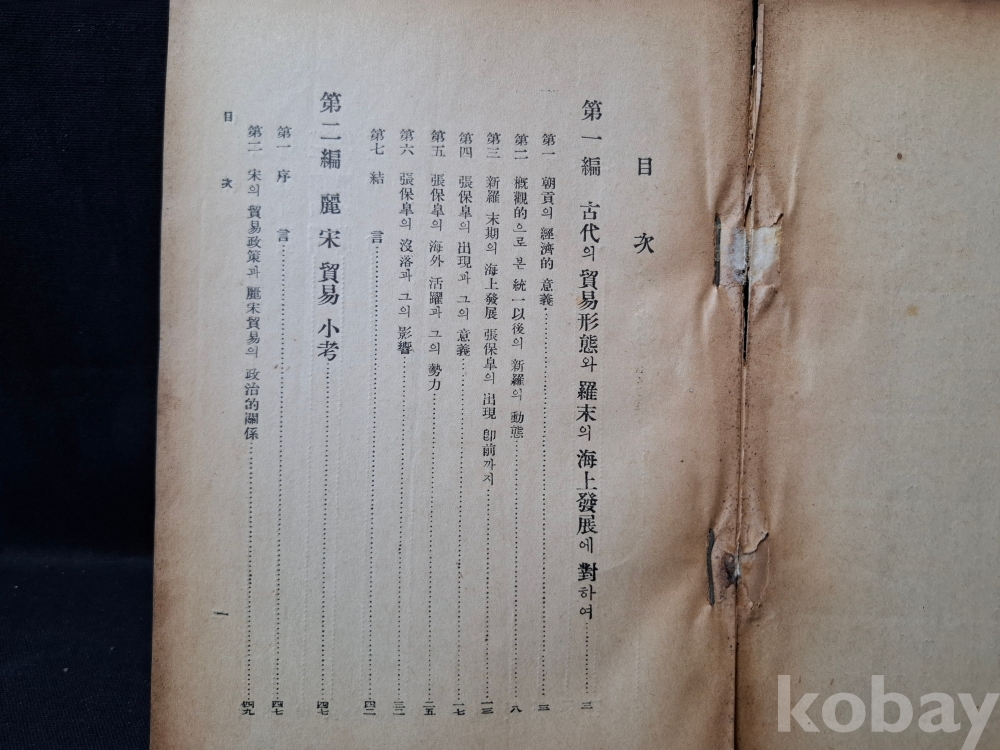 目次
第一編 古代의 貿易形態와 羅末의 海上發展에 對하여 三
第一 朝貢의 經濟的 意義 三
第二 槪觀的으로 본 統一以後의 新羅의 動態 八
第三 新羅 末期의 海上發展 張保皐의 出現 卽前까지 一三
第四 張保皐의 出現과 그의 意義 一七
第五 張保皐의 海外 活躍과 그의 勢力 二五
第六 張保皐의 沒落과 그의 影響 三二
第七 結言 四二
第二編 麗宋 貿易 小考 四七
第一 序言 四七
第二 宋의 貿易政策과 麗宋貿易의 政治的關係 四九
目次 一
kobay